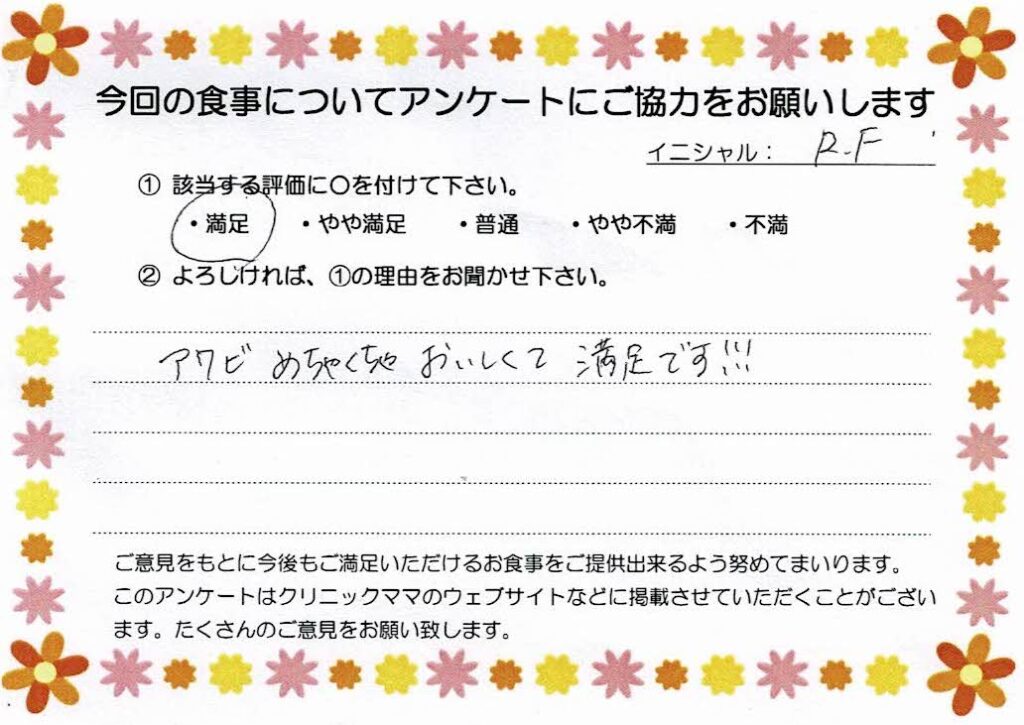 今回の食事についてアンケートにご協力をお願いします
イニシャル： R.F
① 該当する評価に〇を付けて下さい。
・満足 ・やや満足 ・普通 ・やや不満 ・不満
② よろしければ、①の理由をお聞かせ下さい。
アワビ めちゃくちゃ おいしくて 満足です!!!
ご意見をもとに今後もご満足いただけるお食事をご提供出来るよう努めてまいります。
このアンケートはクリニックママのウェブサイトなどに掲載させていただくことがござい
ます。たくさんのご意見をお願い致します。